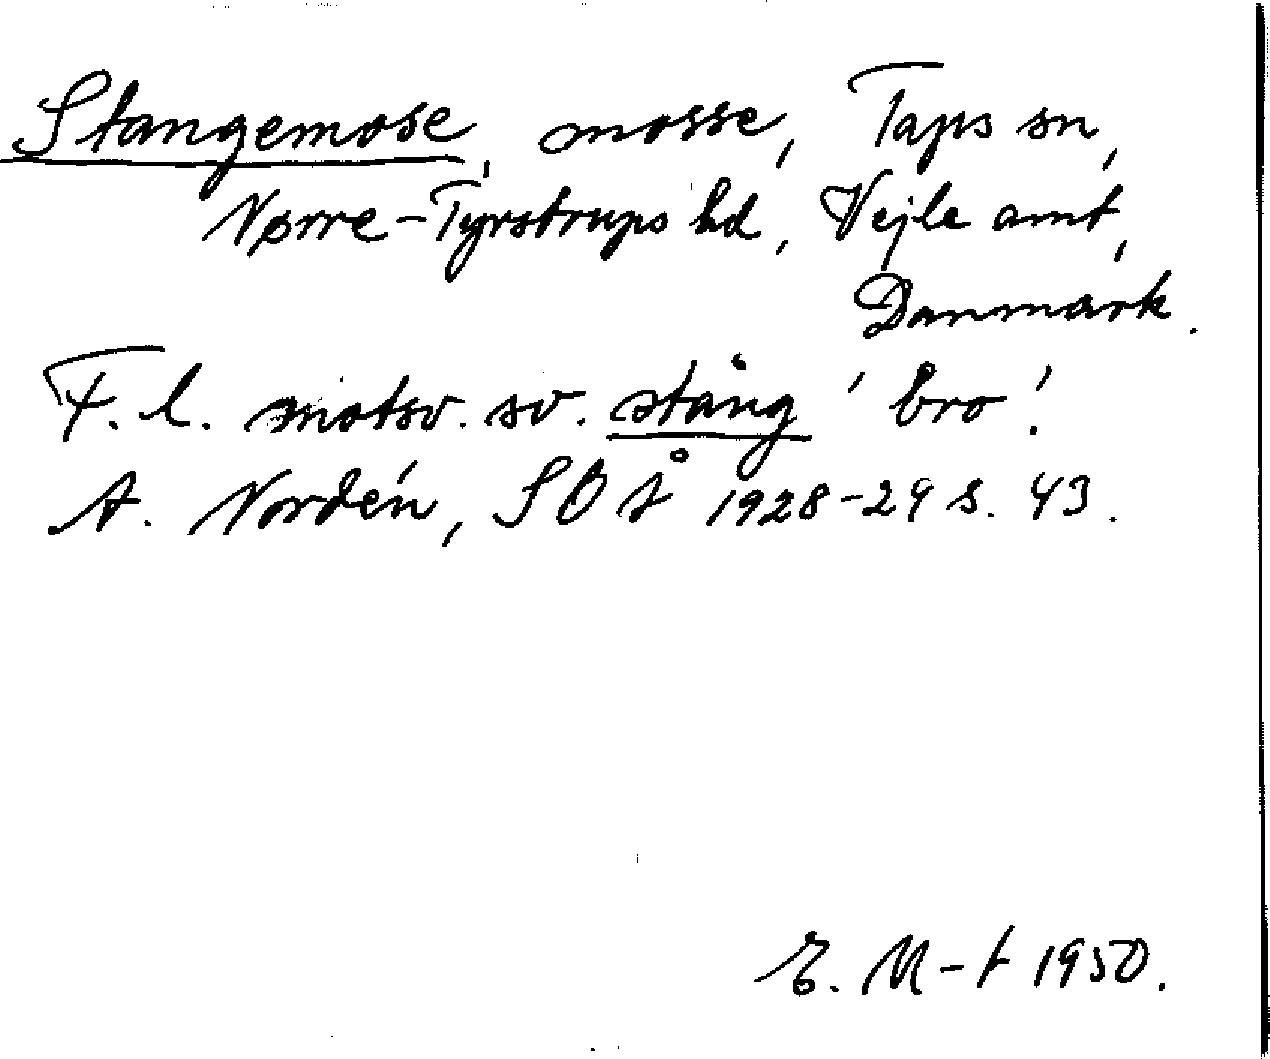 Stangemose, mosse, Taps sn,
Nørre-Tyrstrups hd, Vejle amt,
Danmark.
F. l. motsv. sv. stång 'bro'.
A. Nordén, SOÅ 1928-29 s. 43.
E. M-t 1950.